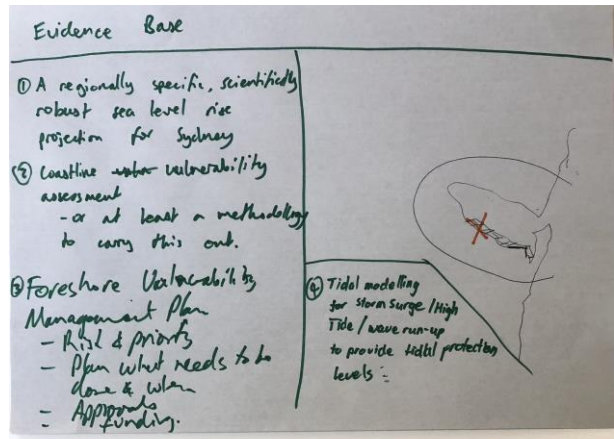 Evidence Base
① A regionally specific, scientifically
robust sea level rise
projection for Sydney
② Coastline vulnerability
assessment
- or at least a methodology
to carry this out.
③ Foreshore Vulnerability
Management Plan
- Risk & priority
- Plan what needs to be
done & when
- Approvals
- funding.
④ Tidal modelling
for storm surge / High
Tide / wave run-up
to provide tidal protection
levels